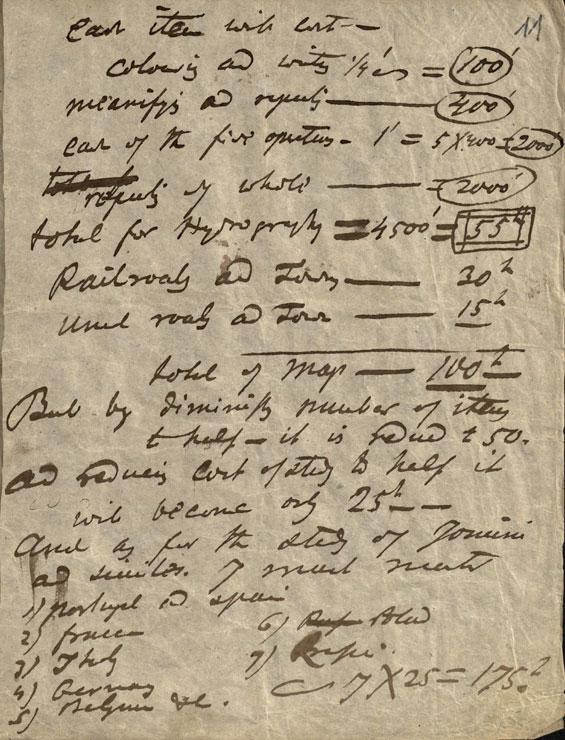 11
each item will cost —
colouring ad writing 1/4' = 100'
ad — 400'
each of the five — 1' = 5 X 400 = 2000'
of whole — = 2000'
total for Hydrography = 4500' = 75h
Railroads ad Towns — 30h
roads ad Town — 15h
total of map — 100h
But by diminish number of items
t half — it is reduced t 50.
ad reducing cost of study to half it
will become only 25h — —
And as for the study of Jomini
ad similar. 7 much
1) portugal ad spain
2) france
3) Italy
4) Germany
5) Belgium &c.
6) Poland
7) Russia
7 X 25 = 175.h